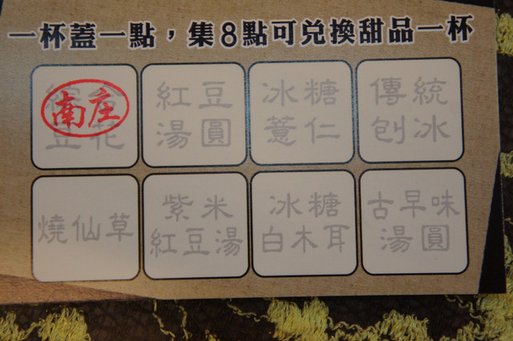 一杯蓋一點，集8點可兌換甜品一杯
南庄
豆花
紅豆
湯圓
冰糖
薏仁
傳統
刨冰
燒仙草
紫米
紅豆湯
冰糖
白木耳
古早味
湯圓